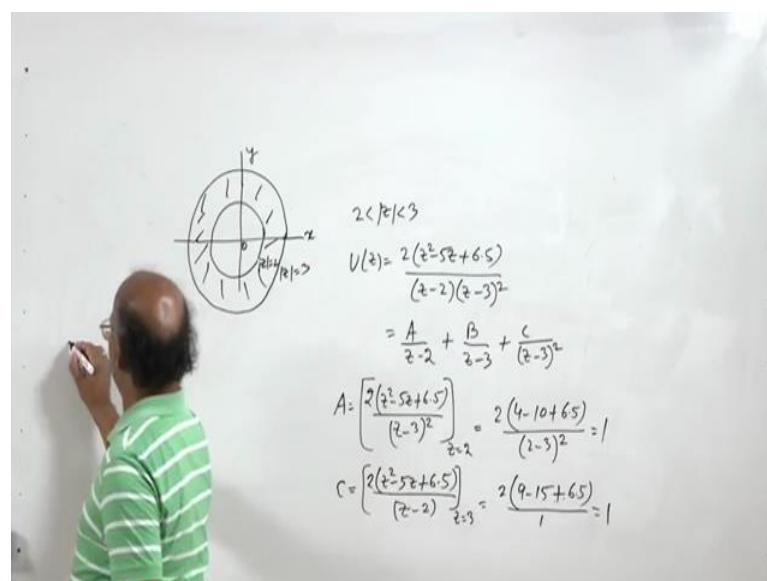 y
x
0
|z|=2
|z|=3
2<|z|<3
U(z)= 2(z²-5z+6.5) / (z-2)(z-3)²
= A/z-2 + B/z-3 + C/(z-3)²
A= [2(z²-5z+6.5) / (z-3)²]z=2 = 2(4-10+6.5) / (2-3)² = 1
C= [2(z²-5z+6.5) / (z-2)]z=3 = 2(9-15+6.5) / 1 = 1